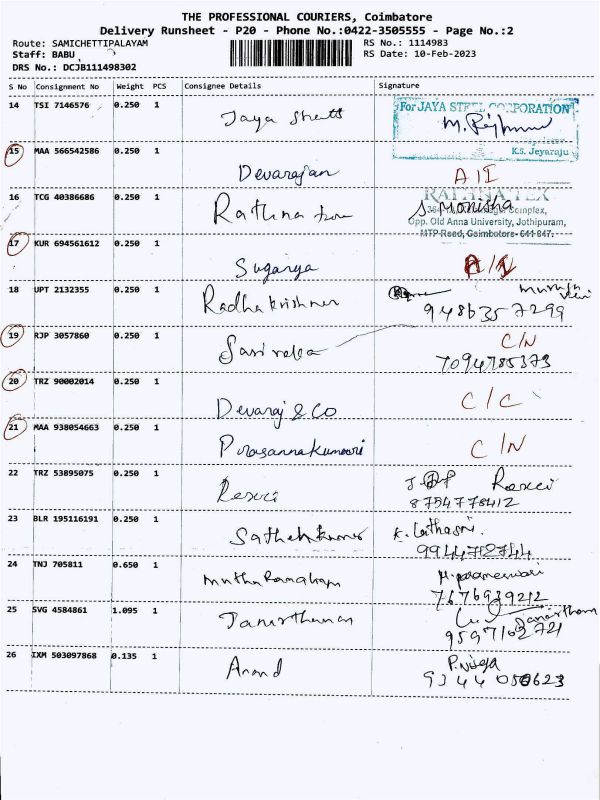 THE PROFESSIONAL COURIERS, Coimbatore
Delivery Runsheet - P20 - Phone No.:0422-3505555 - Page No.:2
Route: SAMICHETTIPALAYAM RS No.: 1114983
Staff: BABU RS Date: 10-Feb-2023
DRS No.: DCJB111498302
S No Consignment No Weight PCS Consignee Details Signature
14 TSI 7146576 0.250 1 Jaya For JAYA STEEL CORPORATION
K.S. Jeyaraju
15 MAA 566542586 0.250 1
Devarajan A/I
16 TCG 40386686 0.250 1 Rathna RATHNA TEX
S. Monisha Complex,
Opp. Old Anna University, Jothipuram,
MTP Road, Coimbatore- 641 047.
17 KUR 694561612 0.250 1
Suganya
18 UPT 2132355 0.250 1 Radhakrishnan
9486357299
19 RJP 3057860 0.250 1 C/N
7094785373
20 TRZ 90002014 0.250 1
Devaraj & Co C/C
21 MAA 938054663 0.250 1
Prasannakumari C/N
22 TRZ 53895075 0.250 1
8754778412
23 BLR 195116191 0.250 1
Sathehkumar K. Lathasri.
9944712744
24 TNJ 705811 0.650 1
7676939212
25 SVG 4584861 1.095 1 Janarthanan Janarthanan
9597102721
26 IXM 503097868 0.135 1 Anand
9344050623